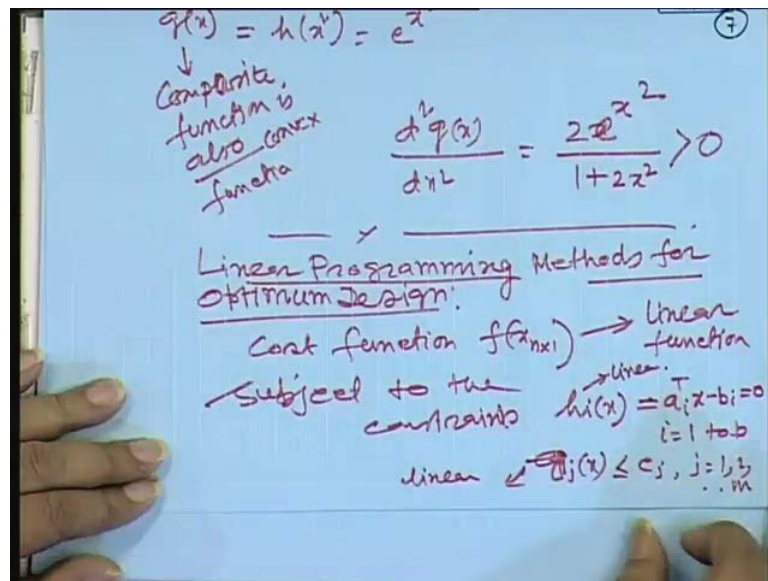 ⑦
q(x) = h(x²) = e^x
↓
Composite
function is
also convex
functio
d²q(x)/dx² = 2e^{x²}/(1+2x²) > 0
Linear Programming Methods for
Optimum Design:
Cost function f(x_{n×1}) → linear
function
subject to the
constraints
→ linear.
h_i(x) = a_i^T x - b_i = 0
i = 1 to b
linear ↙ g_j(x) ≤ c_j, j = 1, 2,
.. m